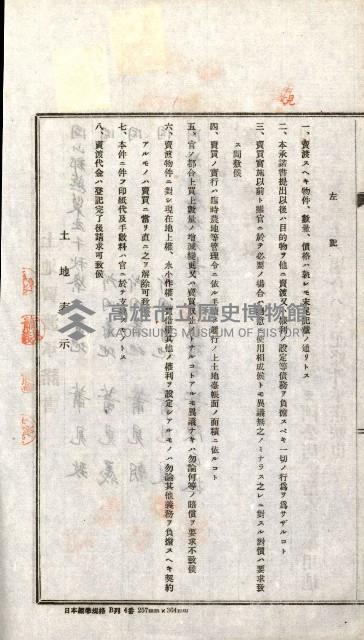 左記
一、賣渡スヘキ物件、數量、價格ハ孰レモ末尾記載ノ通リトス
二、本承諾書提出以後ハ目的物ヲ他ニ賣渡又ハ權利ノ設定等債務ヲ負擔スベキ一切ノ行爲ヲ爲サザルコト
三、賣買實施以前ト雖官ニ於テ必要ノ場合ハ隨意御使用相成候トモ異議無之ノミナラス之レニ對スル對價ハ要求致
ス間敷候
四、賣買ノ實行ハ臨時農地等管理令ニ依ルモノ
ノ上土地臺帳面ノ面積ニ依ルコト
五、官ノ都合上買上數量ノ增減變更又ハ賣買
コトアルモ異議ナキハ勿論何等ノ賠償ヲ要求不致候
六、賣渡物件ニ對シ現在地上權、永小作權、
其他ノ權利ヲ設定シアルモノハ勿論其他義務ヲ負擔スヘキ契約
アルモノハ賣買ニ當リ直ニ之ヲ解除可致
七、本件ニ伴フ印紙代及手數料ハ官ニ於テ支
トス
八、賣渡代金ハ登記完了後請求可致候
土地表示
高雄市立歷史博物館
KAOHSIUNG MUSEUM OF HISTORY
日本標準規格 B列 4番 257mm×364mm